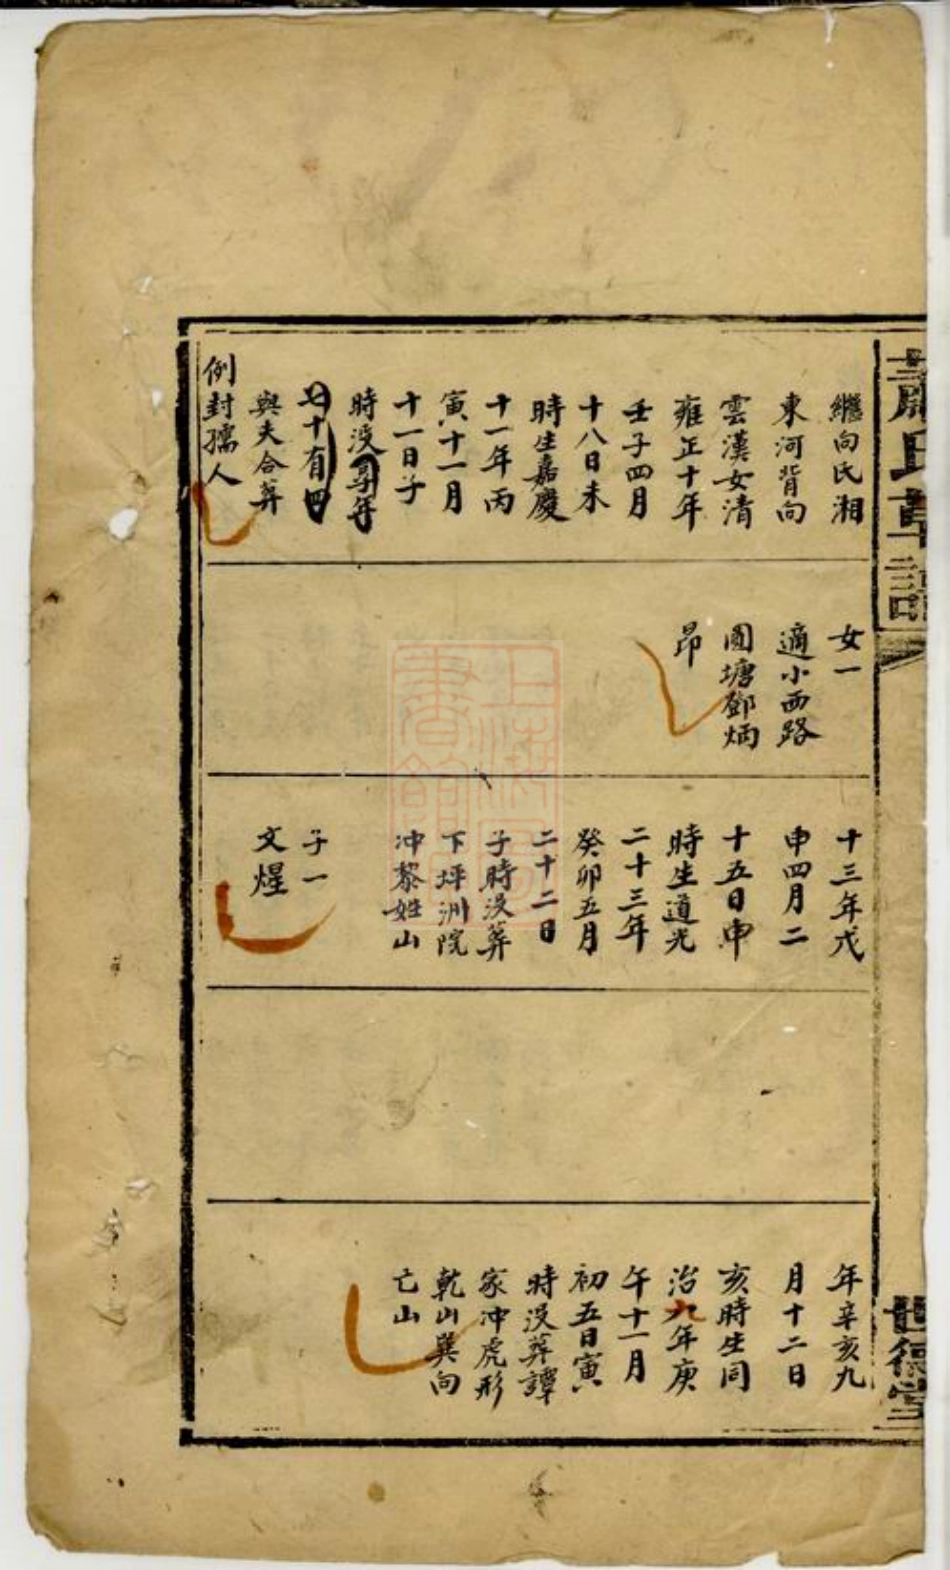 蕭氏草譜
世德堂
繼向氏湘
東河背向
雲漢女清
雍正十年
壬子四月
十八日未
時生嘉慶
十一年丙
寅十一月
十一日子
時没享年
七十有四
與夫合葬
例封孺人
女一
適小西路
圊塘鄧炳
昂
十三年戊
申四月二
十五日申
時生道光
二十三年
癸卯五月
二十二日
子時没葬
下坪洲院
冲黎姓山
子一
文煋
年辛亥九
月十二日
亥時生同
治九年庚
午十一月
初五日寅
時没葬譚
家冲虎形
乾山巽向
亡山
上海圖書館藏